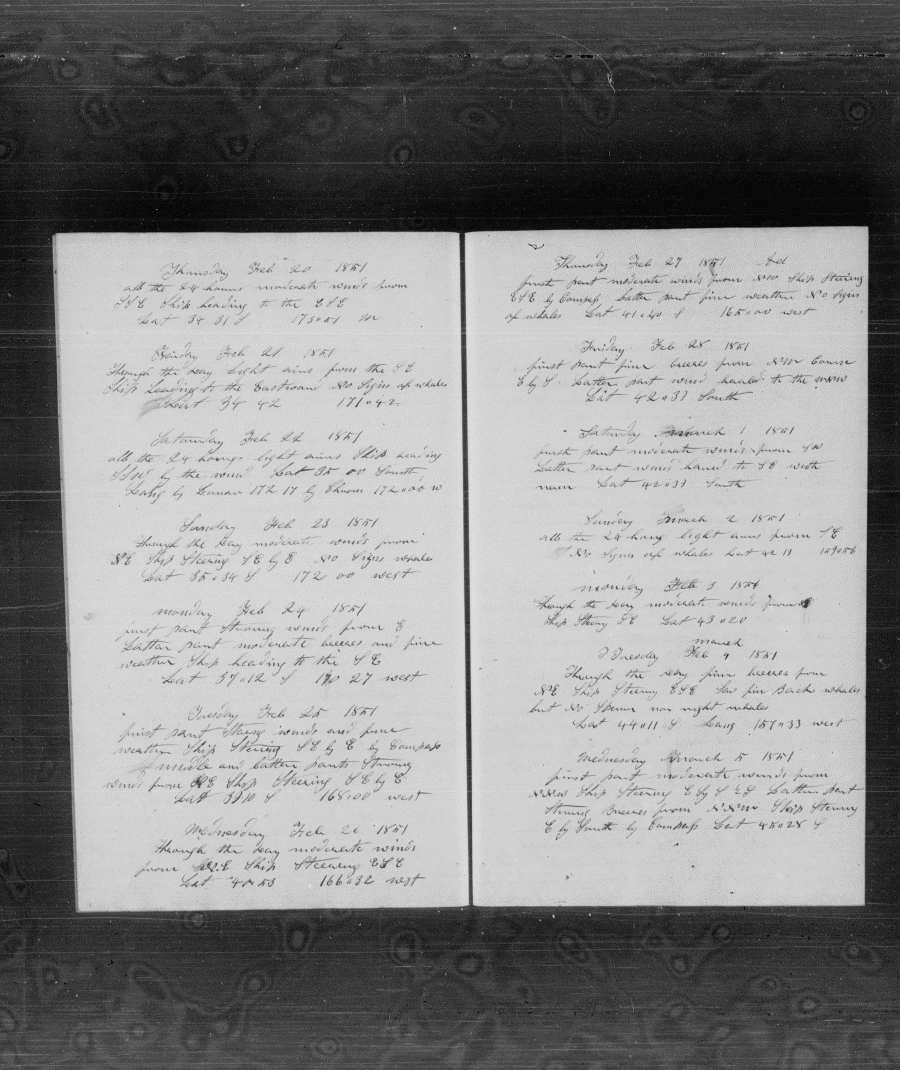 Thursday Feb 20 1851
all the 24 hours moderate winds from
SSE Ship heading to the ESE
Lat 34 31 S 173051 W
Friday Feb 21 1851
Through the day light airs from the SE
Ship heading to the Eastward No Signs of whales
Lat 34 42 171042
Saturday Feb 22 1851
all the 24 hours light airs Ship heading
by the wind Lat 35 00 South
Long by Lunar 172 17 by Chrom 172000 W
Sunday Feb 23 1851
through the day moderate winds from
NE Ship Steering SE by E No Signs whales
Lat 35034 S 172 00 west
monday Feb 24 1851
first part Strong winds from E
Latter part moderate breeses and fine
weather Ship heading to the SE
Lat 37012 S 170 27 west
Tuesday Feb 25 1851
first part Strong winds and fine
weather Ship Steering SE by E by Compass
middle and latter parts Strong
winds from NE Ship Steering SE by E
Lat 39 10 S 168000 west
Wednesday Feb 26 1851
through the day moderate winds
from Ship Steering ESE
Lat 40053 166032 west
Thursday Feb 27 1851
first part moderate winds from NW Ship Steering
ESE by Compass Latter part fine weather No Signs
of whales Lat 41040 S 165000 west
Friday Feb 28 1851
first part fine breeses from NNW Course
E by S Latter part wind hauled to the WNW
Lat 42037 South
Saturday march 1 1851
first part moderate winds from SW
Latter part wind haued to SE with
Lat 42037 South
Sunday march 2 1851
all the 24 hours light airs from SE
No Signs of whales Lat 42 11 159056
monday Feb 3 1851
through the day moderate winds from
Ship Steering SE Lat 43020
march
Tuesday Feb 4 1851
Through the day fine breeses from
NE Ship Steering ESE Saw fin Back whales
but No Sperm nor right whales
Lat 44011 S Long 157033 west
Wednesday march 5 1851
first part moderate winds from
NNW Ship Steering E by S Latter part
Strong Breeses from NNW Ship Steering
E by South by Compass Lat 45028 S